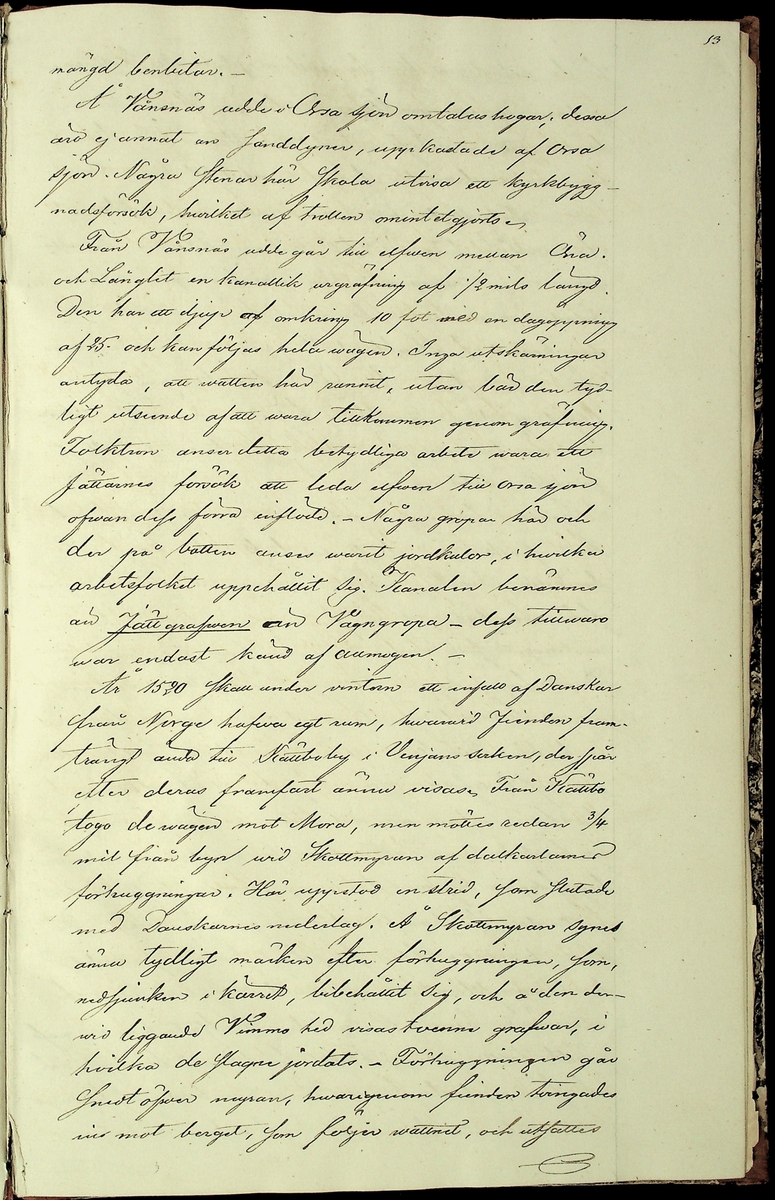 53
mängd benbitar. —
Å Vånsnäs udde i Orsa sjön omtalas högar; dessa
äro ej annat än sanddyner, uppkastade af Orsa
sjön. Några stenar här skola utvisa ett kyrkbygg-
nadsförsök, hvilket af trollen omintetgjorts.
Från Vånsnäs udde går till elfven mellan Öna
och Långlet en kanallik urgräfning af 1/2 mils längd.
Den har ett djup af omkring 10 fot med en dagöppning
af 25. och kan följas hela wägen. Inga utskärningar
antyda, att watten här runnit, utan bär den tyd-
ligt utseende af att wara tillkommen genom gräfning.
Folktron anser detta betydliga arbete wara ett
jättarnes försök att leda elfwen till Orsa sjön
ofwan dess förra inflöde. — Några gropar här och
der på botten anses warit jordkulor, i hwilka
arbetsfolket uppehållit sig. Kanalen benämnes
än Jättgrafwen än Vägngropa — dess tillwaro
war endast känd af allmogen. —
År 1520 skall under vintern ett infall af Danskar
från Norge hafwa egt rum, hwarvid fienden fram-
trängt ända till Kättboby i Venjans socken, der spår
efter deras framfart ännu visas. Från Kättbo
togo de wägen mot Mora, men möttes redan 3/4
mil från byn wid Skottmyran af dalkarlarnes
förhuggningar. Här uppstod en strid, som slutade
med Danskarnes nederlag. Å Skottmyran synes
ännu tydligt märken efter förhuggningen, som,
nedsjunken i kärret, bibehållit sig, och å den der-
wid liggande Vimmo hed visas tvenne grafwar, i
hvilka de slagne jordats. — Förhuggningen går
snedt öfwer myran, hwarigenom fienden tvingades
in mot berget, som följer wattnet, och utsattes